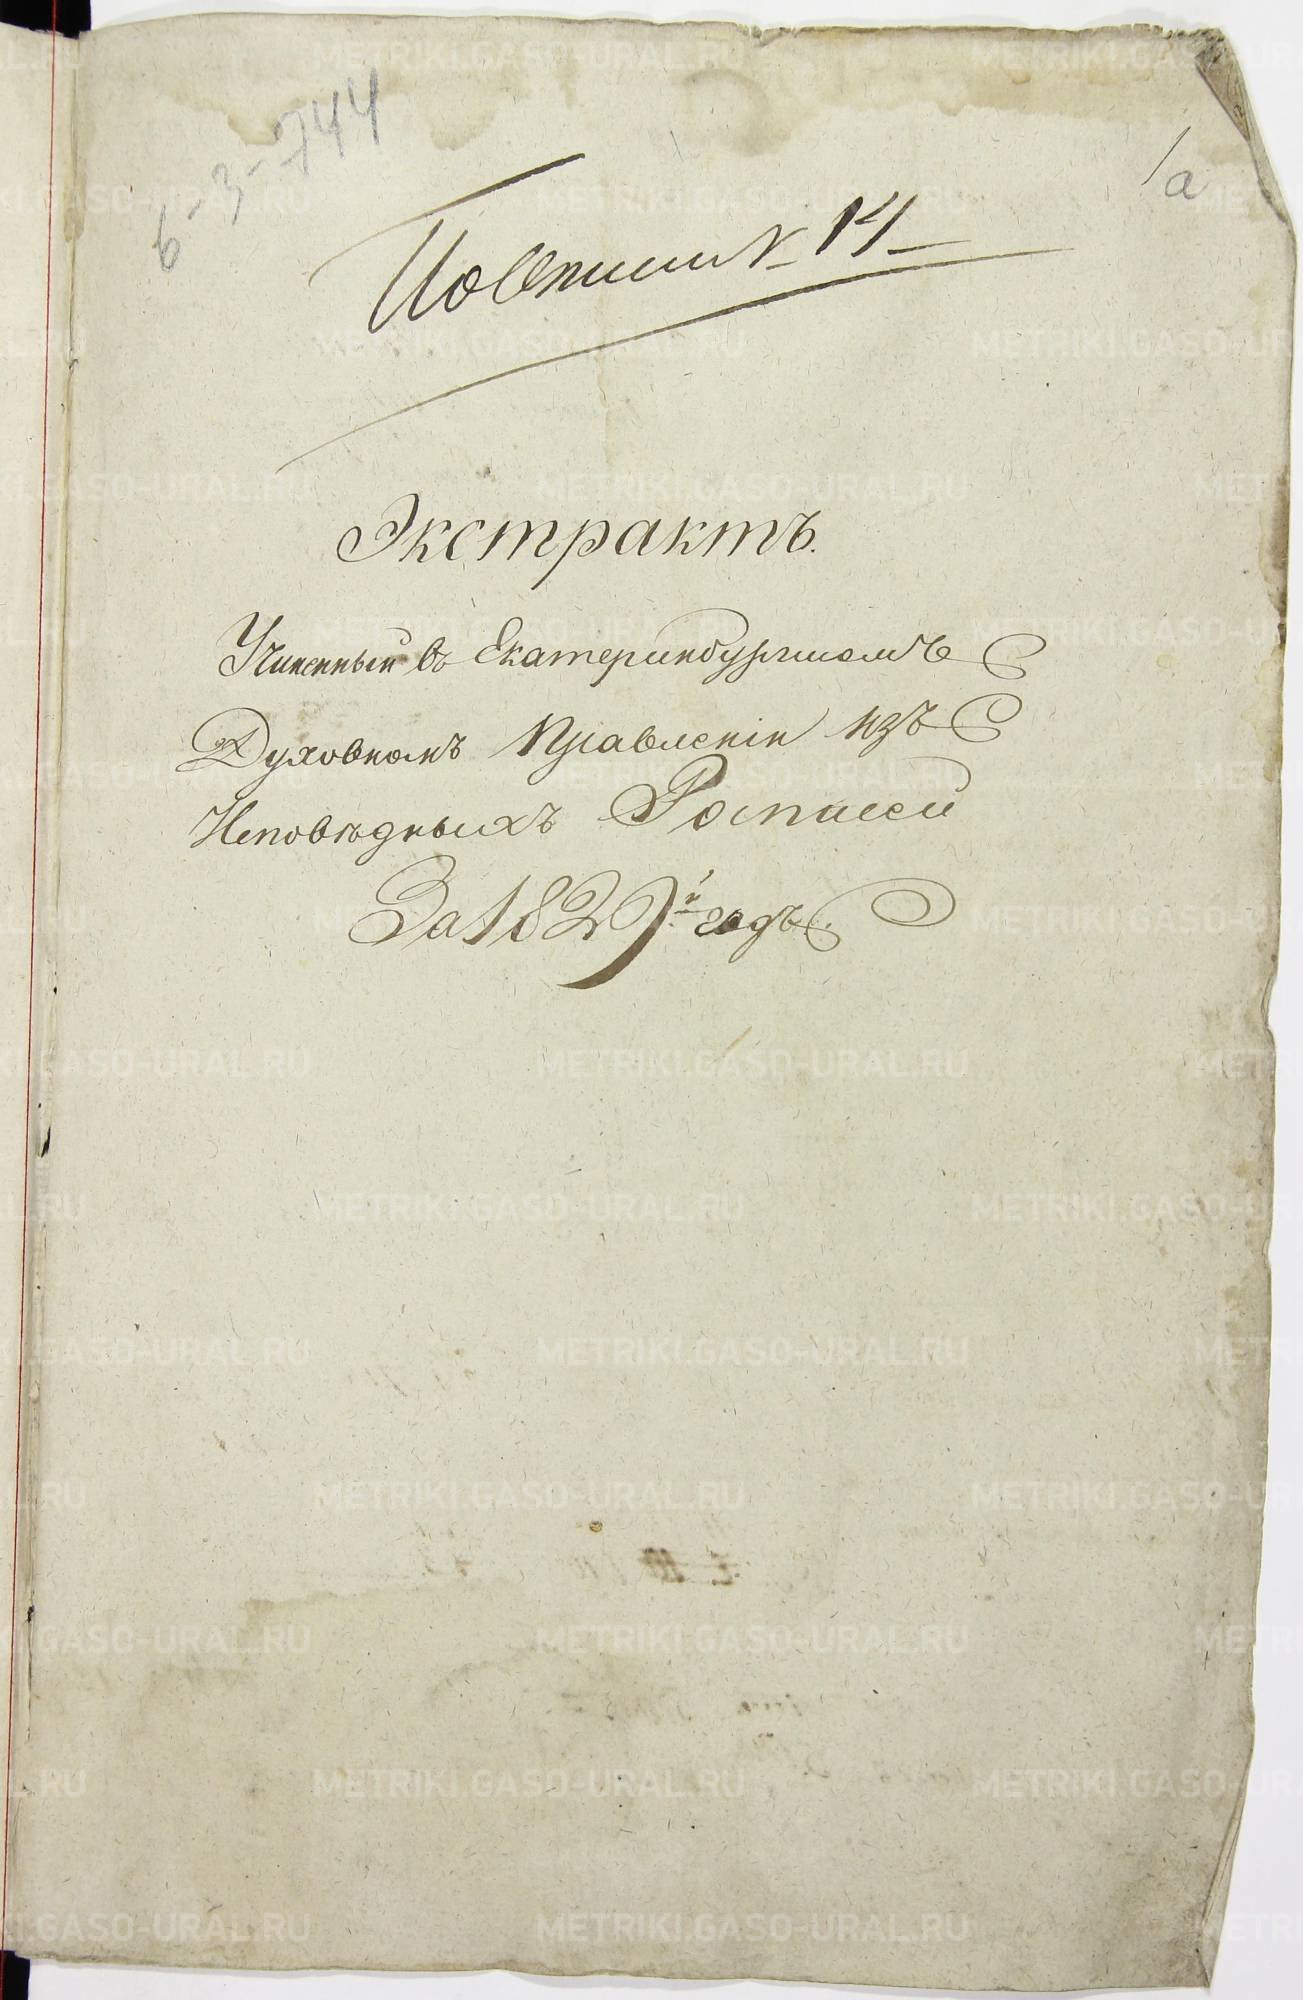 6-3-744
1а
По описи № 14
Экстрактъ.
Учиненный въ Екатеринбургскомъ
Духовномъ Правленіи изъ
Исповѣдныхъ Росписей
За 1829й годъ.
METRIKI.GASO-URAL.RU